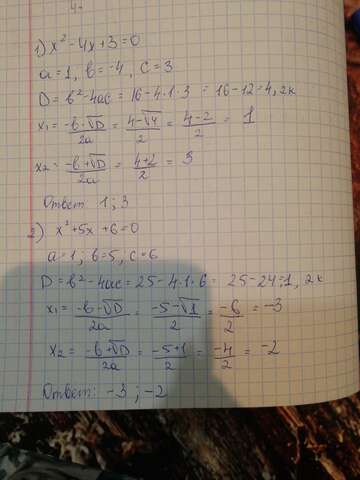 1) x² - 4x + 3 = 0
a = 1, b = -4, c = 3
D = b² - 4ac = 16 - 4·1·3 = 16 - 12 = 4, 2к
x₁ = (-b - √D)/2a = (4 - √4)/2 = (4 - 2)/2 = 1
x₂ = (-b + √D)/2a = (4 + 2)/2 = 3
Ответ 1; 3
2) x² + 5x + 6 = 0
a = 1; b = 5, c = 6
D = b² - 4ac = 25 - 4·1·6 = 25 - 24 = 1, 2к
x₁ = (-b - √D)/2a = (-5 - √1)/2 = (-6)/2 = -3
x₂ = (-b + √D)/2a = (-5 + 1)/2 = (-4)/2 = -2
Ответ: -3; -2